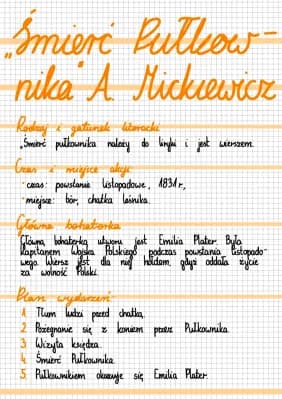 „Śmierć Pułkow-
nika" A. Mickiewicz
Rodzaj i gatunek literacki
„Śmierć pułkownika należy do liryki i jest wierszem.
Czas i miejsce akcji
· czas: powstanie listopadowe, 1831r.,
· miejsce: bór, chatka leśnika.
Główna bohaterka
Główną bohaterką utworu jest Emilia Plater. Była
kapitanem Wojska Polskiego podczas powstania listopado-
wego. Wiersz jest dla niej hołdem, gdyż oddała życie
za wolność Polski.
Plan wydarzeń:
1. Tłum ludzi przed chatką.
2. Pożegnanie się z koniem przez Pułkownika.
3. Wizyta księdza.
4. Śmierć Pułkownika.
5. Pułkownikiem okazuje się Emilia Plater.